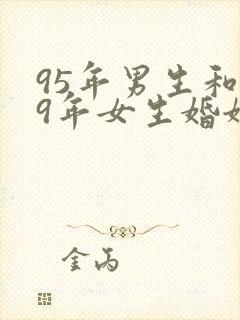 95年男生和
9年女生婚
金丙